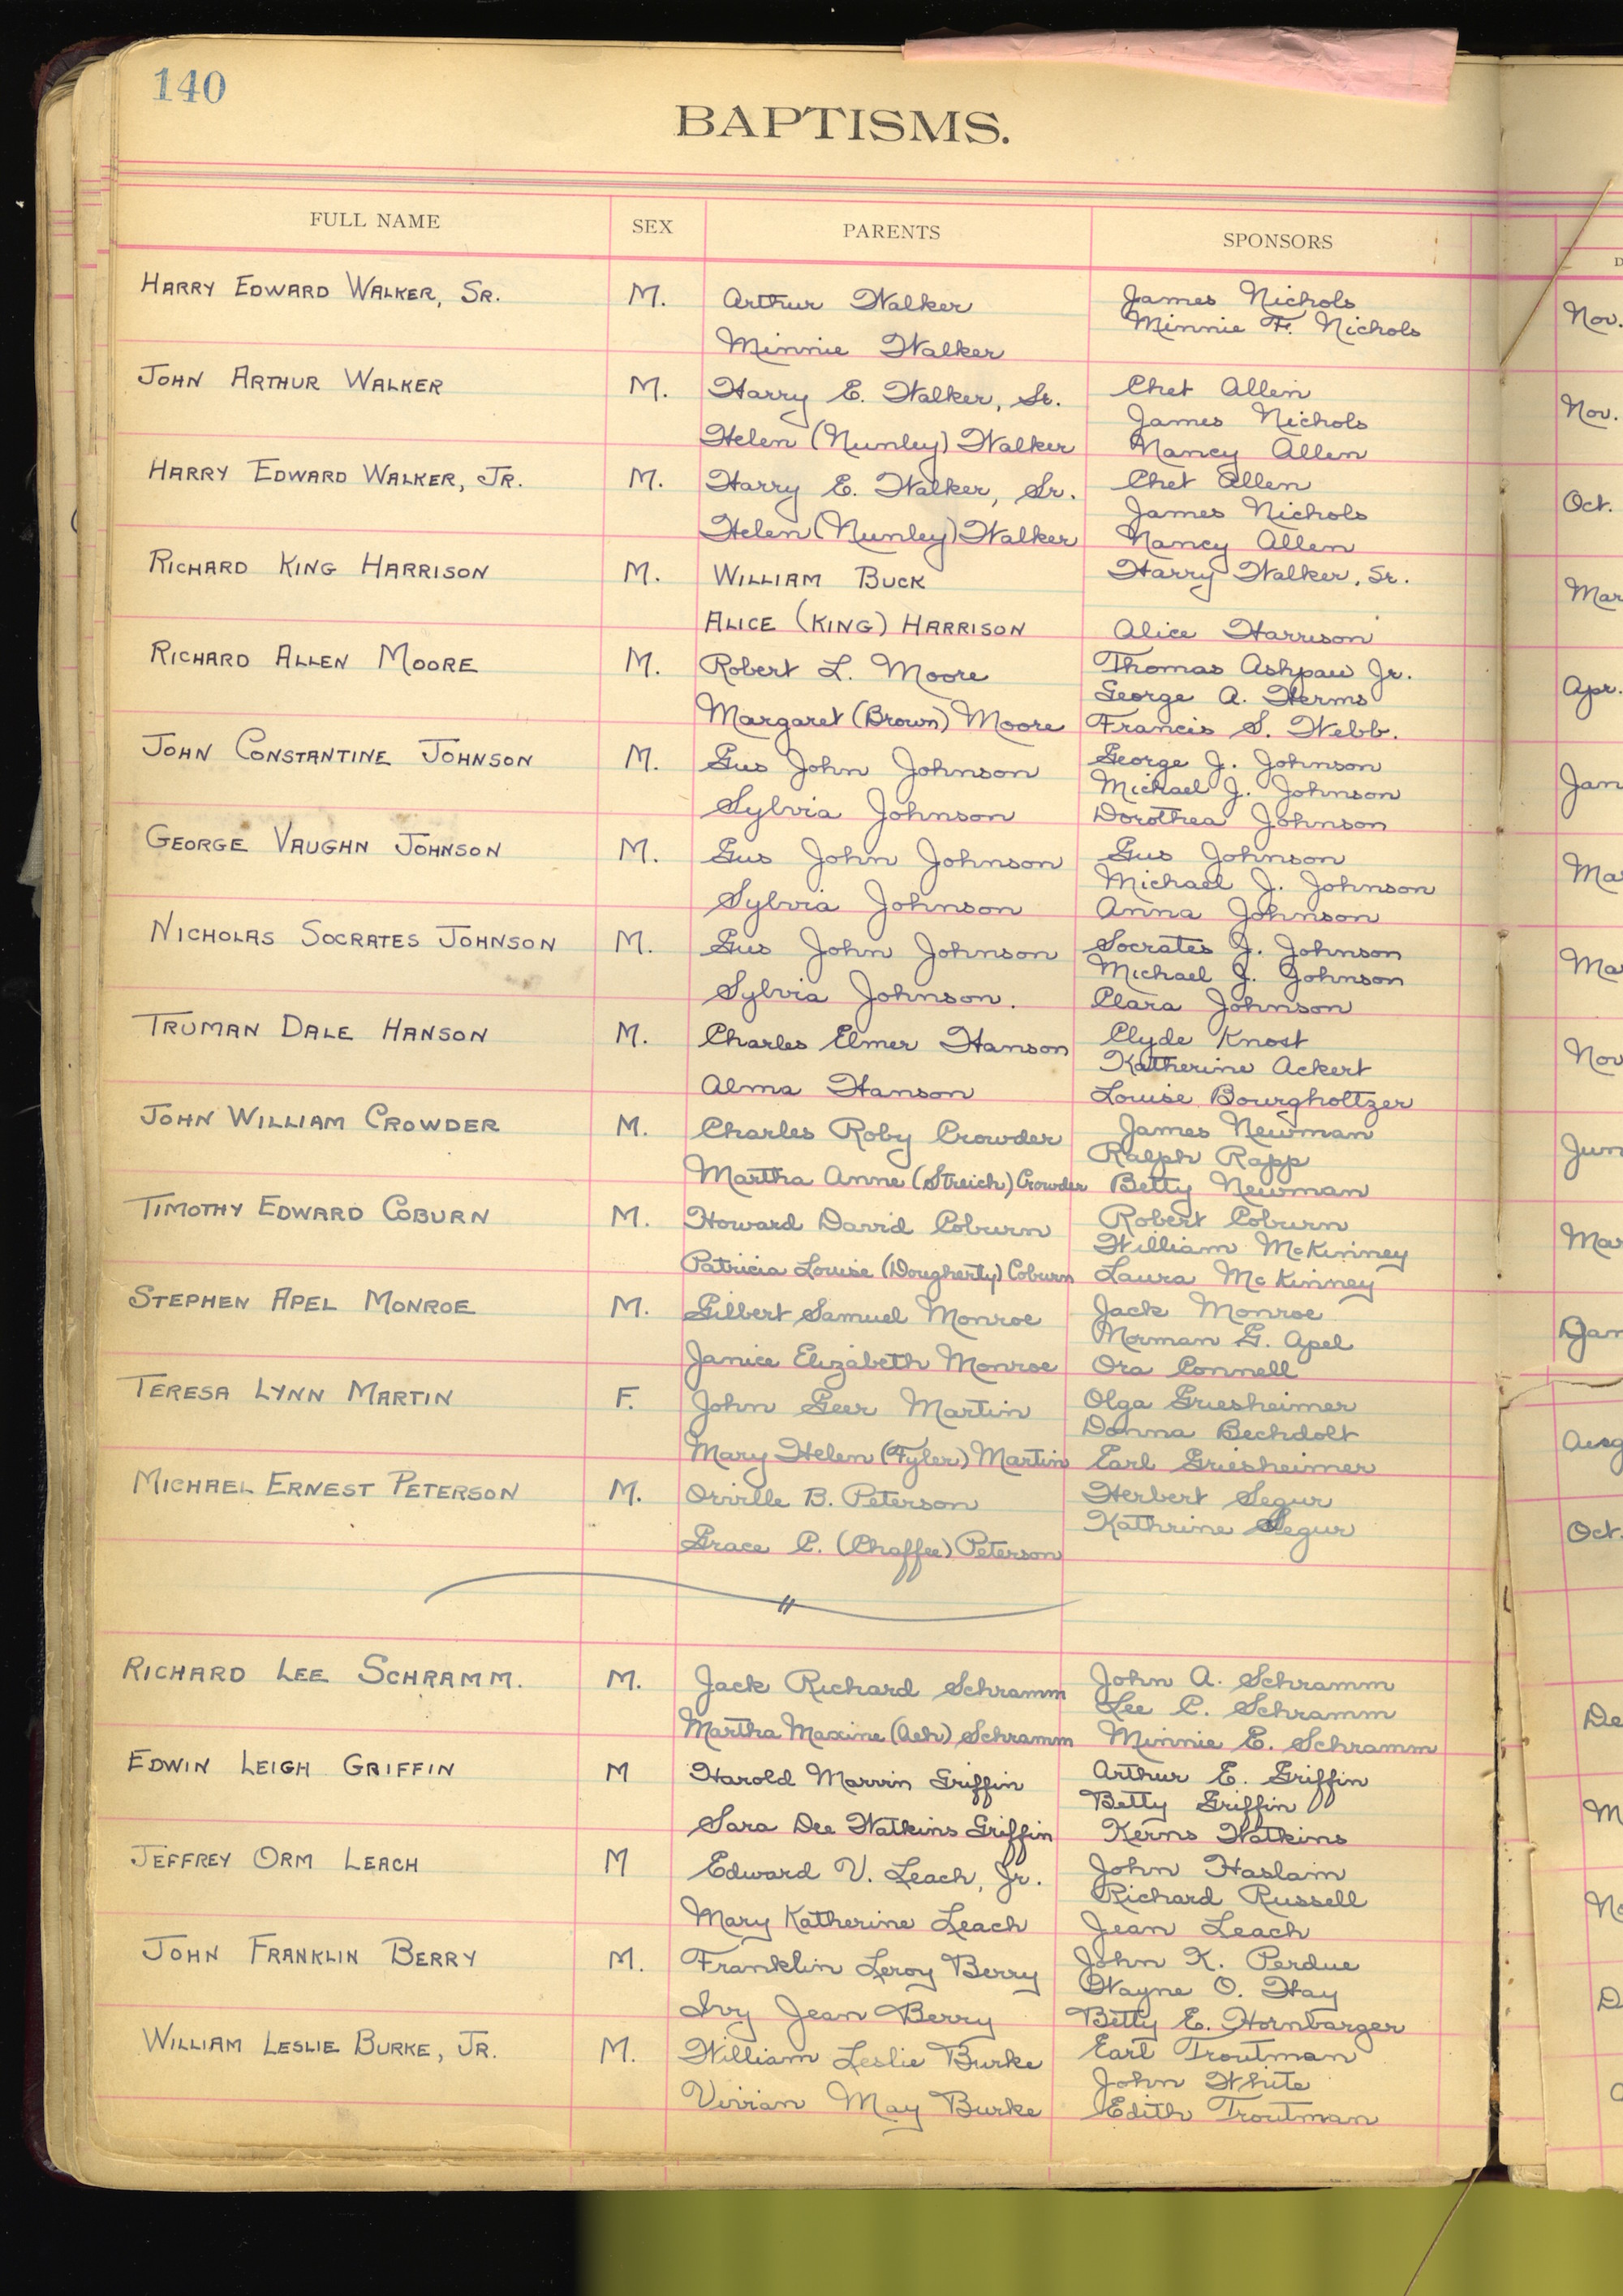 140
BAPTISMS.
FULL NAME SEX PARENTS SPONSORS
HARRY EDWARD WALKER, SR. M. Arthur Walker James Nichols Nov.
Minnie F. Nichols
Minnie Walker
JOHN ARTHUR WALKER M. Harry E. Walker, Sr. Chet Allen Nov.
James Nichols
Helen (Nunley) Walker Nancy Allen
HARRY EDWARD WALKER, JR. M. Harry E. Walker, Sr. Chet Allen Oct.
James Nichols
Helen (Nunley) Walker Nancy Allen
RICHARD KING HARRISON M. WILLIAM BUCK Harry Walker, Sr. Mar
ALICE (KING) HARRISON Alice Harrison
RICHARD ALLEN MOORE M. Robert L. Moore Thomas Ashpaw Jr. Apr.
George A. Herms
Margaret (Brown) Moore Francis S. Webb.
JOHN CONSTANTINE JOHNSON M. Gus John Johnson George J. Johnson Jan
Michael J. Johnson
Sylvia Johnson Dorothea Johnson
GEORGE VAUGHN JOHNSON M. Gus John Johnson Gus Johnson Ma
Michael J. Johnson
Sylvia Johnson Anna Johnson
NICHOLAS SOCRATES JOHNSON M. Gus John Johnson Socrates J. Johnson Ma
Michael J. Johnson
Sylvia Johnson. Clara Johnson
TRUMAN DALE HANSON M. Charles Elmer Hanson Clyde Knost Nov
Katherine Ackert
Alma Hanson Louise Bourgholtzer
JOHN WILLIAM CROWDER M. Charles Roby Crowder James Newman Jun
Ralph Rapp
Martha Anne (Streich) Crowder Betty Newman
TIMOTHY EDWARD COBURN M. Howard David Coburn Robert Coburn Mar
William McKinney
Patricia Louise (Dougherty) Coburn Laura McKinney
STEPHEN APEL MONROE M. Gilbert Samuel Monroe Jack Monroe Jan
Norman G. Apel
Janice Elizabeth Monroe Ora Connell
TERESA LYNN MARTIN F. John Geer Martin Olga Griesheimer Aug
Donna Bechdolt
Mary Helen (Fyler) Martin Earl Griesheimer
MICHAEL ERNEST PETERSON M. Orville B. Peterson Herbert Segur Oct.
Kathrine Segur
Grace C. (Chaffee) Peterson
RICHARD LEE SCHRAMM. M. Jack Richard Schramm John A. Schramm De
Lee C. Schramm
Martha Maxine (Ach) Schramm Minnie E. Schramm
EDWIN LEIGH GRIFFIN M Harold Marvin Griffin Arthur E. Griffin M
Betty Griffin
Sara Dee Watkins Griffin Kerns Watkins
JEFFREY ORM LEACH M Edward V. Leach, Jr. John Haslam No
Richard Russell
Mary Katherine Leach Jean Leach
JOHN FRANKLIN BERRY M. Franklin Leroy Berry John K. Perdue D
Wayne O. Hay
Ivy Jean Berry Betty E. Hornbarger
WILLIAM LESLIE BURKE, JR. M. William Leslie Burke Earl Troutman
John White
Vivian May Burke Edith Troutman